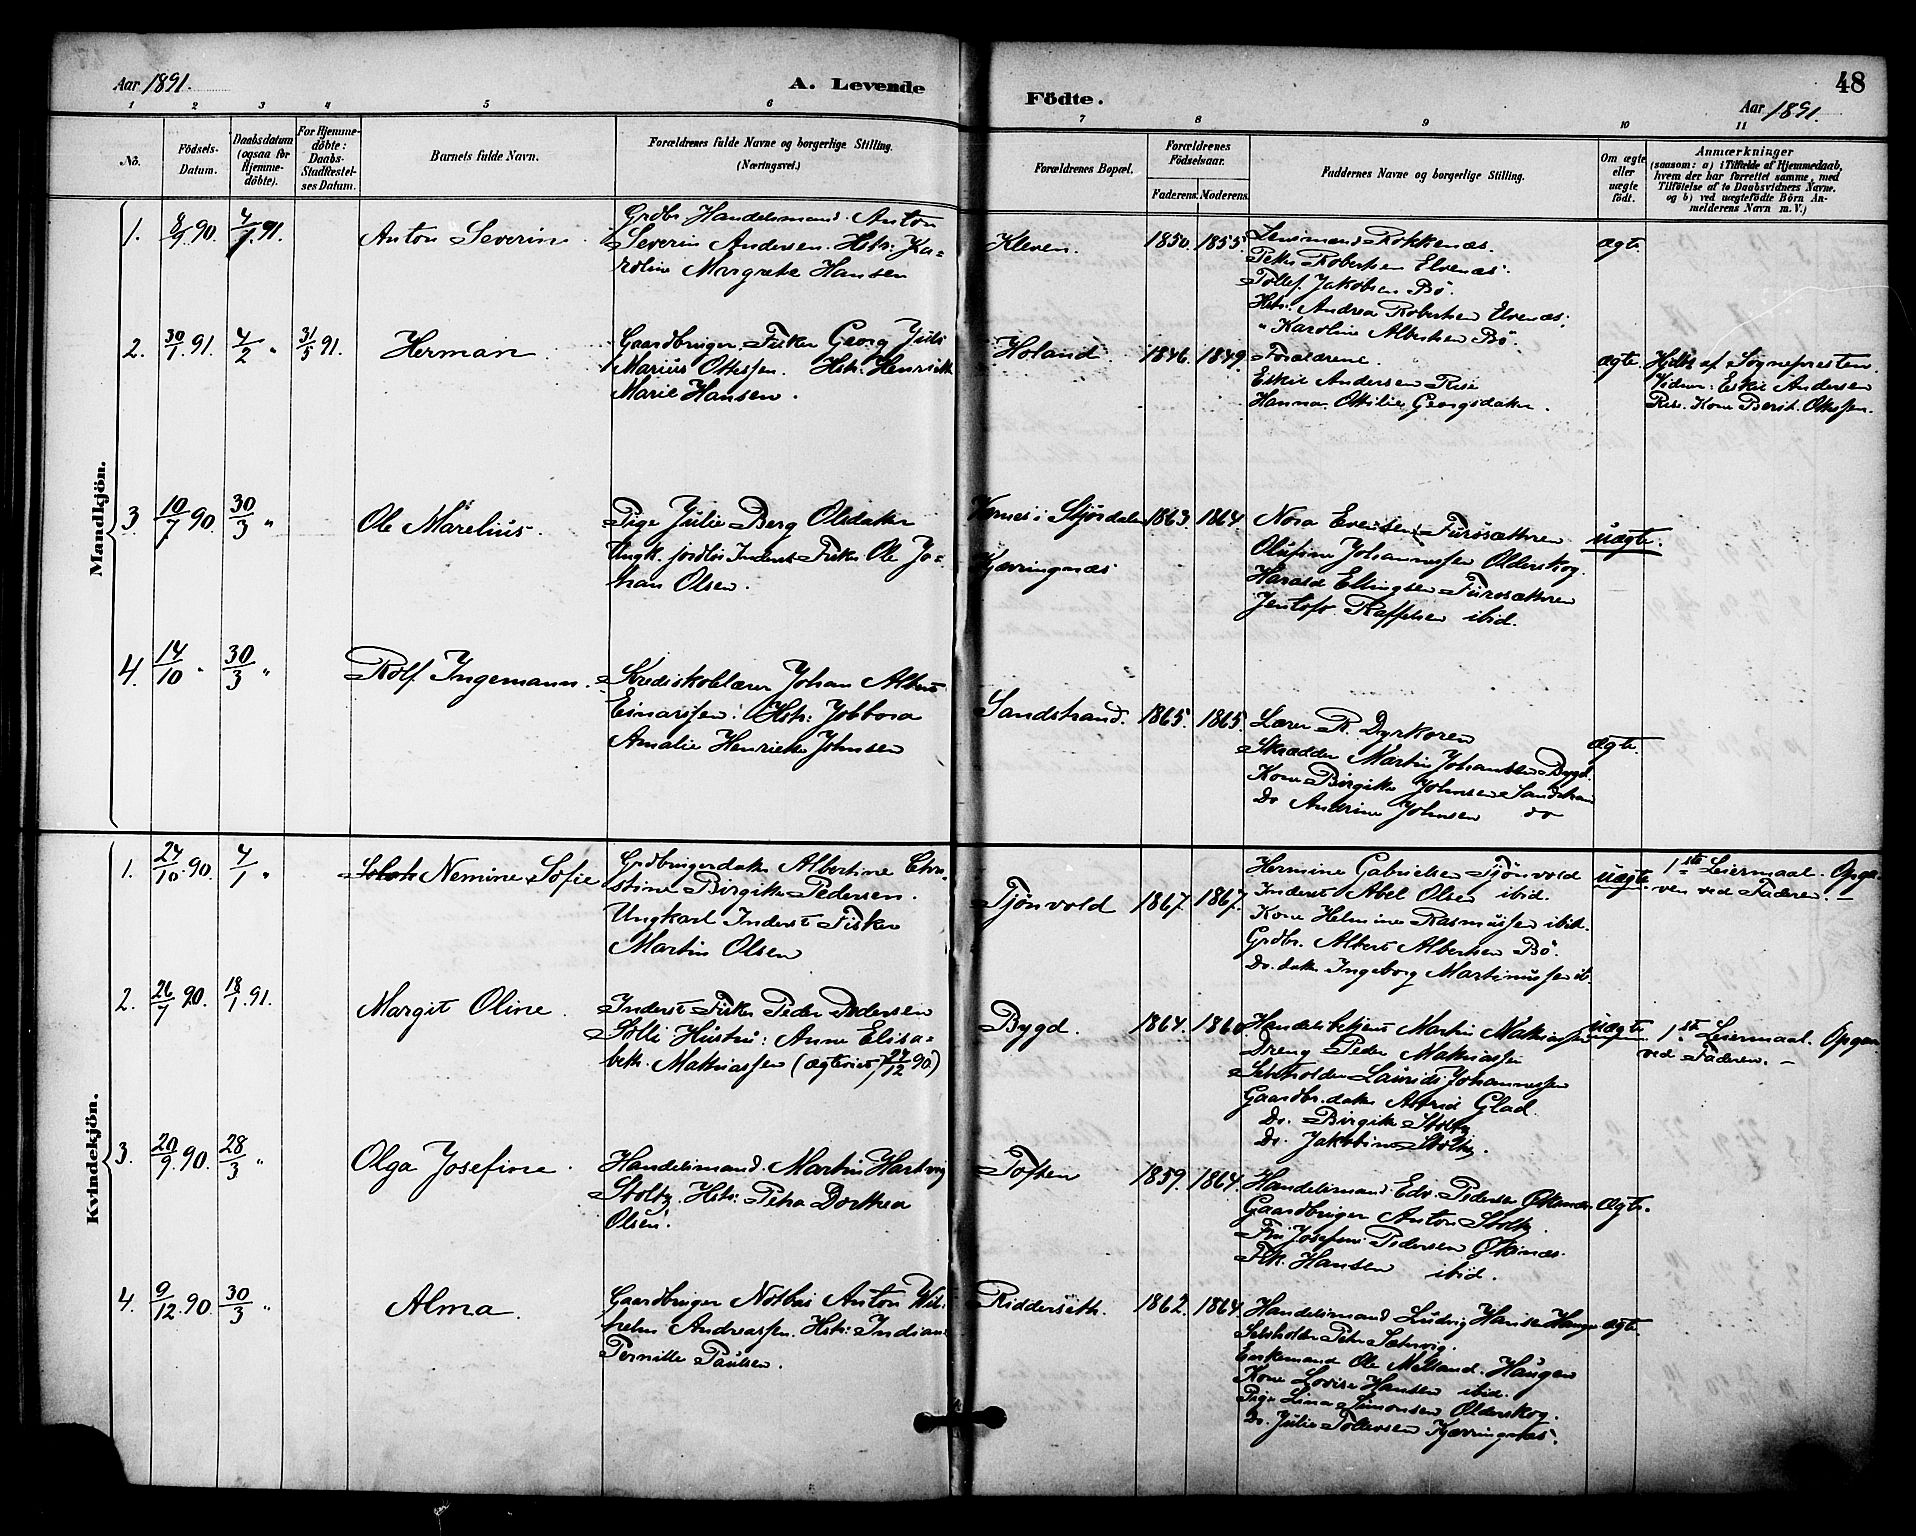 Aar 1891.
A. Levende
Födte.
48
Aar 1891.
1 2 3 4 5 6 7 8 9 10 11
Nô.
Födsels-
Datum.
Daabsdatum
(ogsaa for
Hjemme-
döbte).
For Hjemme-
döbte:
Daabs-
Stadfæstel-
ses Datum.
Barnets fulde Navn.
Forældrenes fulde Navne og borgerlige Stilling.
(Næringsvei.)
Forældrenes Bopæl.
Forældrenes
Födselsaar.
Faderens. Moderens.
Faddernes Navne og borgerlige Stilling.
Om ægte
eller
uægte
födt.
Anmærkninger
(saasom: a) i Tilfælde af Hjemmedaab,
hvem der har forrettet samme, med
Tilföielse af to Daabsvidners Navne.
og b) ved uægtefödte Börn An-
melderens Navn m. V.)
Mandkjön.
1. 8/9 90. 4/1 91.
Anton Severin.
Grdbr. Handelsmand Anton
Severin Andersen. Hstr: Ka-
roline Margrete Hansen
Kleven. 1850. 1855.
Lensmand Rokkenæs.
Peter Robertsen Elvenæs.
Tollef Jakobsen Bö.
Hstr: Andrea Robertsen Elvenæs.
" Karoline Albertsen Bö.
ægte
2. 30/1 91. 4/2 " 31/5 91.
Herman.
Gaardbruger, Fisker Georg Juli
Marius Ottesen. Hstr: Henriette
Marie Hansen.
Holand 1846. 1849.
Forældrene.
Eskil Andersen Rise
Hanna Ottilie Georgsdatter.
ægte.
Hjdbt af Sognepresten.
Vidner: Eskil Andersen
Rise. Kone Berit Ottesen.
3 10/7 90. 30/3 "
Ole Marelius.
Pige Julie Berg Olsdatter
Ungk. jordlös Inderst Fisker Ole Jo-
han Olsen.
Værnes i Stjørdalen 1863. 1864.
Kjærringnæs
Nora Evensen Furösætteren
Olufine Johannessen Olderskog.
Harald Ellingsen Furösætteren
Jentoft Raffelsen ibid.
uægte.
4. 14/10 " 30/3 "
Rolf Ingemann.
Kredsskolelærer Johan Albert
Einarssen. Hstr: Jobbora
Amalie Henriette Johnsen
Sandstrand. 1865. 1865.
Lærer R. Dyrkoren
Skrædder Martin Johansen Bygd.
Kone Birgitte Johnsen Sandstran
Do Andrine Johnsen do
ægte.
Kvindekjön.
1. 24/10 90. 4/1 "
Nemine Sofie
Grdbrugerdatter Albertine Chri-
stine Birgitte Pedersen.
Ungkarl Inderst Fisker
Martin Olsen
Tjönvold 1867. 1867.
Hermine Gabrielsen Tjönvold
Inderst Abel Olsen ibid.
Kone Helmine Rasmussen ibid.
Grdbr. Albert Albertsen Bö.
Do. datter Ingeborg Martinussen ib.
uægte
1ste Leiermaal. Opgi-
ven ved Faderen. —
2. 26/7 90. 18/1 91.
Margit Oline.
Inderst Fisker Peder Pedersen
Solli Hustru: Anne Elisa-
bet Mathiassen (ægteviet 27/12 90)
Bygd. 1864. 1860
Handelsbetjent Martin Mathiassen
Dreng Peder Mathiassen
Selvholden Laurids Johannessen
Gaardbr. datter Astrid Glad
Do. Birgitte Stoltz
Do. Jakobine Stoltz.
uægte
1ste Leiermaal. Opgiv
ved Faderen. —
3. 20/9 90. 28/3 "
Olga Josefine.
Handelsmand Martin Hartvig
Stoltz. Hstr: Petra Dorthea
Olsen.
Toften 1859. 1864.
Handelsmand Edv. Pedersen Öksnæs
Gaardbruger Anton Stoltz
Fru Josefine Pedersen Öksnæs.
Frk. Hansen ibid.
ægte.
4. 9/12 90. 30/3 "
Alma.
Gaardbruger Notbas Anton Wil-
helm Andreassen. Hstr: Indiane
Pernille Paulsen.
Ridderseth. 1862. 1864.
Handelsmand Ludvig Hansen Haugen
Selvholden Peter Sætervig.
Enkemand Ole Melland Haugen
Kone Lovise Hansen ibid.
Pige Lina Simonsen Olderskog.
Do. Julie Tollevsen Kjærringnæs.
ægte